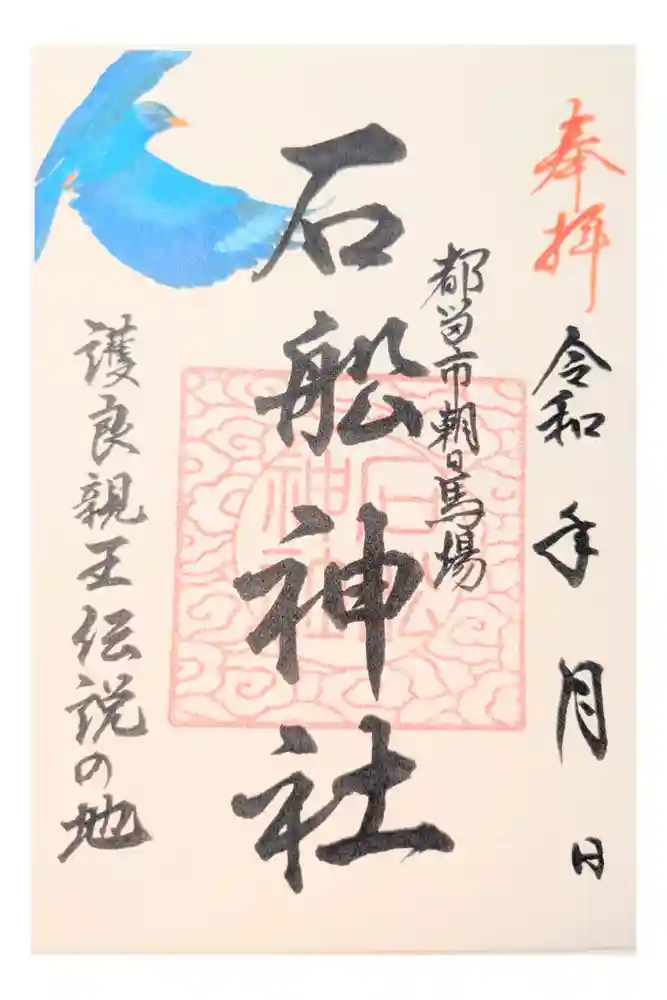 奉拝
令和 年 月 日
都留市朝日馬場
石船神社
護良親王伝説の地
石船神社